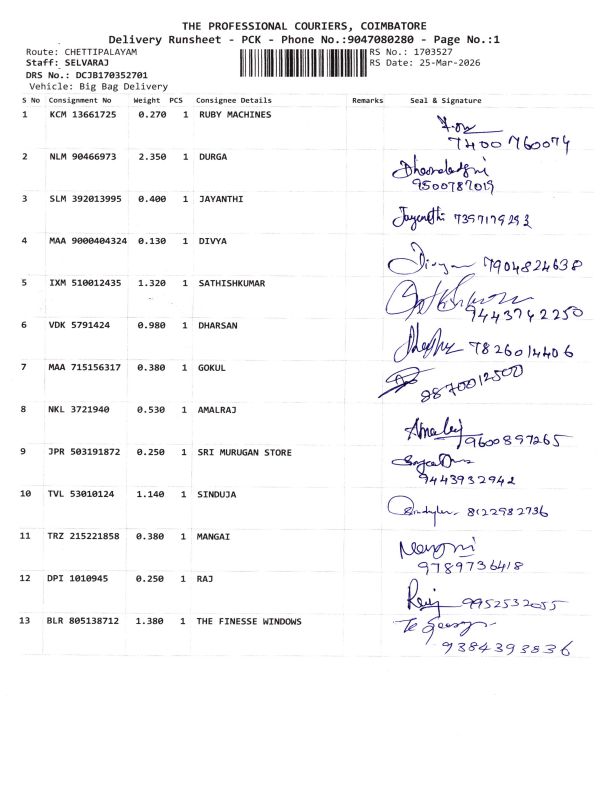 THE PROFESSIONAL COURIERS, COIMBATORE
Delivery Runsheet - PCK - Phone No.:9047080280 - Page No.:1
Route: CHETTIPALAYAM RS No.: 1703527
Staff: SELVARAJ RS Date: 25-Mar-2026
DRS No.: DCJB170352701
Vehicle: Big Bag Delivery
S No Consignment No Weight PCS Consignee Details Remarks Seal & Signature
1 KCM 13661725 0.270 1 RUBY MACHINES
7400760074
2 NLM 90466973 2.350 1 DURGA
9500787019
3 SLM 392013995 0.400 1 JAYANTHI
Jayanthi 7397179293
4 MAA 9000404324 0.130 1 DIVYA
Divya 7904824638
5 IXM 510012435 1.320 1 SATHISHKUMAR
9443742250
6 VDK 5791424 0.980 1 DHARSAN
7826014406
7 MAA 715156317 0.380 1 GOKUL
9870012500
8 NKL 3721940 0.530 1 AMALRAJ
9600897265
9 JPR 503191872 0.250 1 SRI MURUGAN STORE
9443932942
10 TVL 53010124 1.140 1 SINDUJA
8122982736
11 TRZ 215221858 0.380 1 MANGAI
9789736418
12 DPI 1010945 0.250 1 RAJ
Raj 9952532055
13 BLR 805138712 1.380 1 THE FINESSE WINDOWS
9384393836